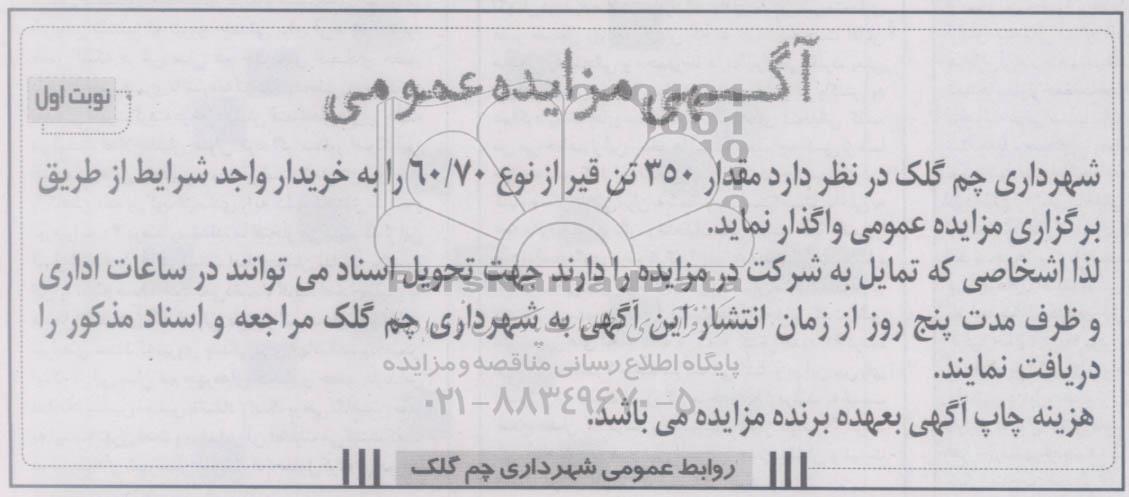 آگهی مزایده عمومی
نوبت اول
شهرداری چم گلک در نظر دارد مقدار ۳۵۰ تن قیر از نوع ۶۰/۷۰ را به خریدار واجد شرایط از طریق
برگزاری مزایده عمومی واگذار نماید.
لذا اشخاصی که تمایل به شرکت در مزایده را دارند جهت تحویل اسناد می توانند در ساعات اداری
و ظرف مدت پنج روز از زمان انتشار این آگهی به شهرداری چم گلک مراجعه و اسناد مذکور را
دریافت نمایند.
هزینه چاپ آگهی بعهده برنده مزایده می باشد.
روابط عمومی شهرداری چم گلک
ParsNamadData
پایگاه اطلاع رسانی مناقصه و مزایده
۰۲۱-۸۸۳۴۹۶۷۰-۵